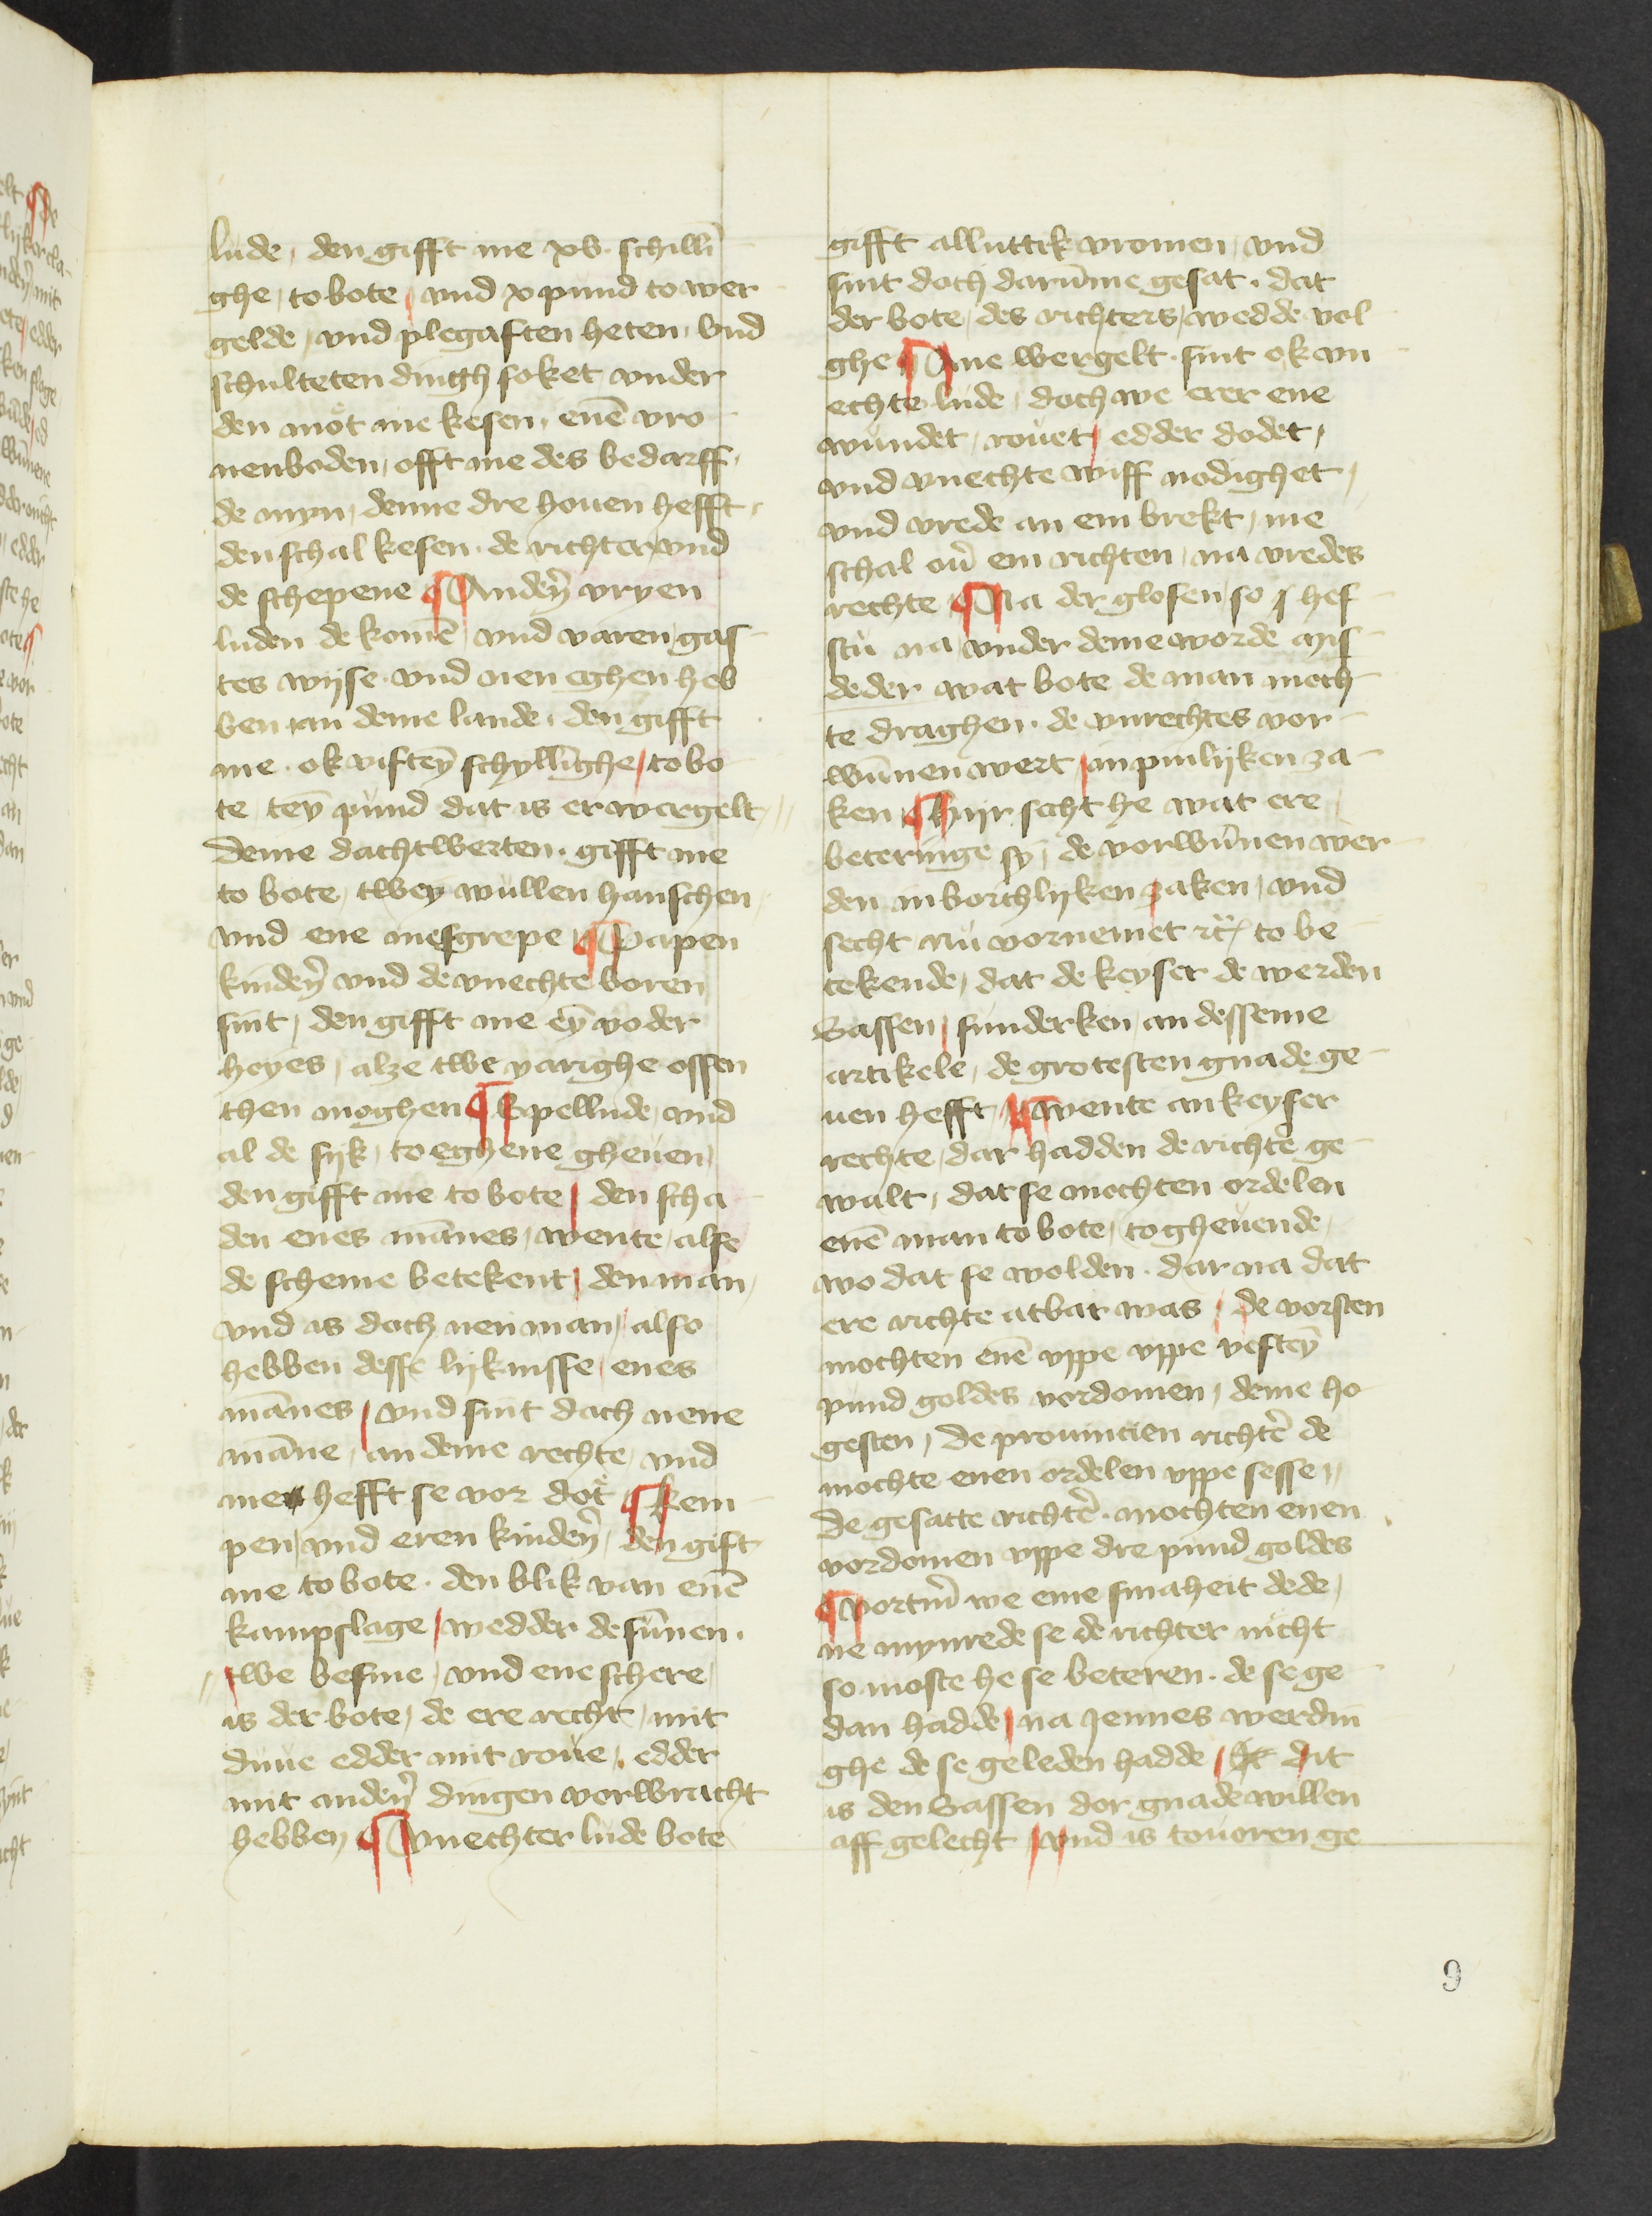 lude, den gifft me xv. schilli͞
ghe, to bote, vnd x pund to wer
gelde, vnd plegaften heten, Vnd
schulteten dingh soket vnder
den mot me kesen, ene͞ vro
nenboden, offt me des bedarff,
de myn, denne dre houen hefft,
den schal kesen. de richter vnd
de schepene ¶ Andeñ vryen
luden de kome͞, vnd varen, gas
tes wijse. vnd nen eghen heb
ben, an deme lande, den gifft
me. ok vifteȳ schyllinghe, to bo
te, teȳ pund dat is er wergelt,
deme dachtwerten. gifft me
to bote, twey wullen hanschen
vnd ene mesgrepe ¶ Papen
kindeñ vnd de vnechte boren
sint, den gifft me eȳ voder
heyes, alze twe yarighe ossen
then moghen ¶ Spellude, vnd
al de sijk, to eghene gheuen,
den gifft me to bote, den scha
den enes ma͞nes, wente, alse
de scheme betekent, den man,
vnd is doch nen man, also
hebben desse lijknisse, enes
ma͞nes, vnd sint doch nene
ma͞ne, an deme rechte, vnd
me hefft se vor dot ¶ Kem
pen, vnd eren kindeñ, den gift
me to bote. den blik van ene͞
kampslage, wedder de su͞nen.
twe besme, vnd ene schere,
is der bote, de ere recht, mit
duue edder mit roue, edder
mit andeñ dingen vorwracht
hebben, ¶ Vnechter lude bote
gifft alluttik vromen, vnd
sint doch daru͞me gesat. dat
der bote, des richters, wedde vol
ghe ¶ Ane wergelt. sint ok vn
echte lude, doch we erer ene
wundet, rouet, edder dodet,
vnd vnechte wiff nodighet,
vnd vrede an em brekt, me
schal ou͛ em richten, na vredes
rechte ¶ Na der glosen, so hef
stu na, vnder deme worde mis
deder wat bote de man moch
te draghen. de vnrechtes vor
wu͞nen wert, in pinlijken za
ken ¶ Hijr secht he wat ere
beteringe sy, de vorwu͞nen wer
den in borchlijken zaken, vnd
secht nu vornemet rc͞ to be
tekende, dat de keyser de werden
Sassen, sunderken, an desseme
artikele, de grotesten gnade ge
uen hefft, ¶ wente an keyser
rechte, dar hadden de richte͛ ge
walt, dat se mochten ordelen
ene͞ man to bote, to gheuende,
wo dat se wolden. dar na dat
ere richte atbar was, de vorsten
mochten ene͞ vppe vppe vefteȳ
pund goldes vordomen, deme ho
gesten, de prouincien richte͛ de
mochte enen ordelen vppe sesse,
de gesatte richte͛. mochten enen
vordomen vppe dre pund goldes
¶ Vortm͛ we eme smaheit dede,
ne mynrede se de richter nicht
so moste he se beteren. de se ge
dan hadde, na jennes werdin
ghe de se geleden hadde, dit
is den Sassen dor gnade willen
aff gelecht, vnd is touoren ge
9